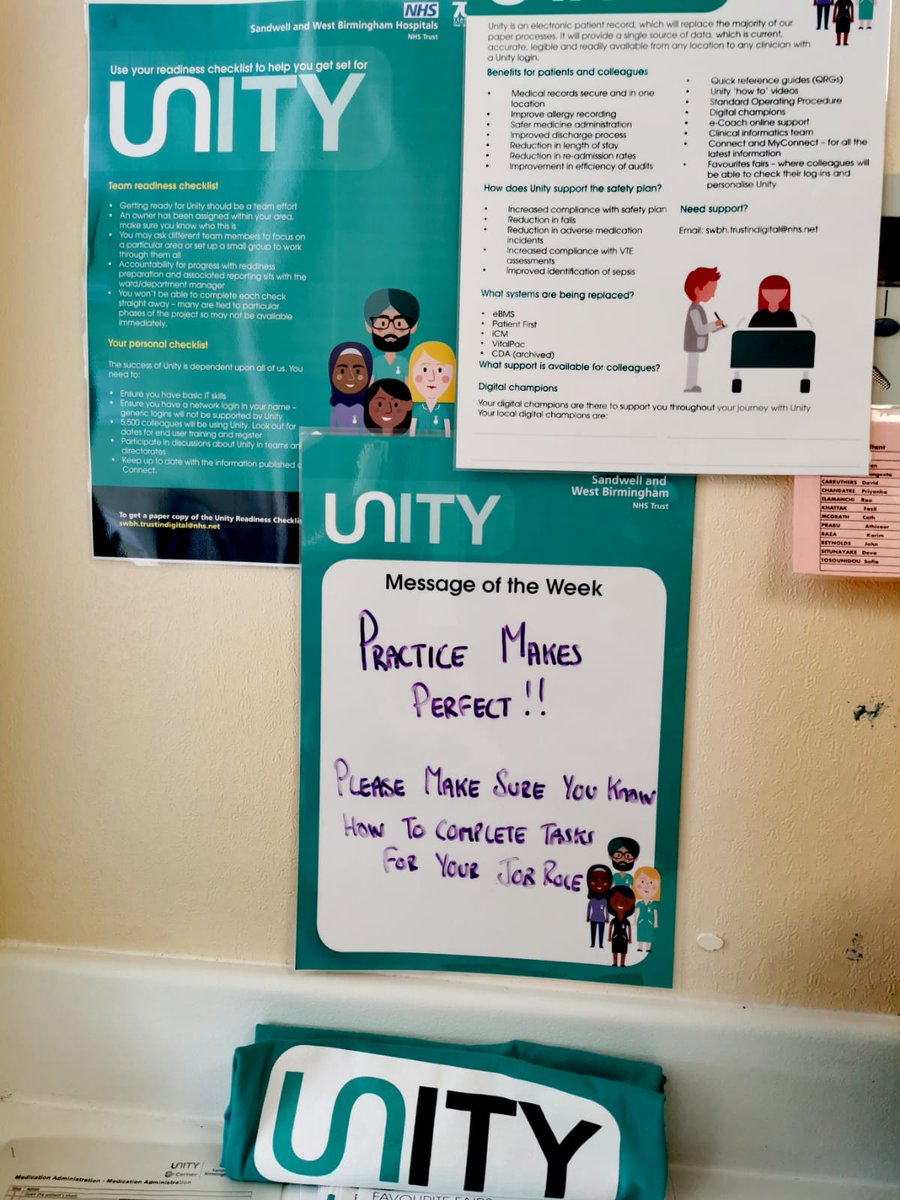 NHS
Sandwell and West Birmingham Hospitals
NHS Trust
Use your readiness checklist to help you get set for
UNITY
Team readiness checklist
• Getting ready for Unity should be a team effort
• An owner has been assigned within your area, make sure you know who this is
• You may ask different team members to focus on
a particular area or set up a small group to work
through them all
• Accountability for progress with readiness
preparation and associated reporting sits with the
ward/department manager
• You won't be able to complete each check
straight away – many are tied to particular
phases of the project so may not be available
immediately.
Your personal checklist
The success of Unity is dependent upon all of us. You
need to:
• Ensure you have basic IT skills
• Ensure you have a network login in your name –
generic logins will not be supported by Unity
• 5,500 colleagues will be using Unity. Look out for
dates for end user training and register
• Participate in discussions about Unity in teams
directorates
• Keep up to date with the information published
Connect.
To get a paper copy of the Unity Readiness
swbh.trustindigital@nhs.net
Unity is an electronic patient record, which will replace the majority of our
paper processes. It will provide a single source of data, which is current,
accurate, legible and readily available from any location to any clinician with
a Unity login.
Benefits for patients and colleagues
• Medical records secure and in one
location
• Improve allergy recording
• Safer medicine administration
• Improved discharge process
• Reduction in length of stay
• Reduction in re-admission rates
• Improvement in efficiency of audits
• Quick reference guides (QRGs)
• Unity 'how to' videos
• Standard Operating Procedure
• Digital champions
• e-Coach online support
• Clinical informatics team
• Connect and MyConnect – for all the
latest information
• Favourites fairs – where colleagues will
be able to check their log-ins and
personalise Unity
How does Unity support the safety plan?
• Increased compliance with safety plan
• Reduction in falls
• Reduction in adverse medication
incidents
• Increased compliance with VTE
assessments
• Improved identification of sepsis
Need support?
Email: swbh.trustindigital@nhs.net
What systems are being replaced?
• eBMS
• Patient First
• iCM
• VitalPac
• CDA (archived)
What support is available for colleagues?
Digital champions
Your digital champions are there to support you throughout your journey with Unity
Your local digital champions are:
CARRUTHERS David
CHANDATRE Priyanka
ELAMANCHI Rao
KHATTAK Fazil
MCGRATH Cath
PRABU Athiveer
RAZA Karim
REYNOLDS John
SITUNAYAKE Deva
TOSOUNIDOU Sofia
Sandwell and
West Birmingham
NHS Trust
UNITY
Message of the Week
PRACTICE MAKES
PERFECT!!
PLEASE MAKE SURE YOU KNOW
HOW TO COMPLETE TASKS
FOR YOUR JOB ROLE
UNITY
UNITY
Cerner
Medication Administration - Medication Administration
FAVOURITE FAIRS